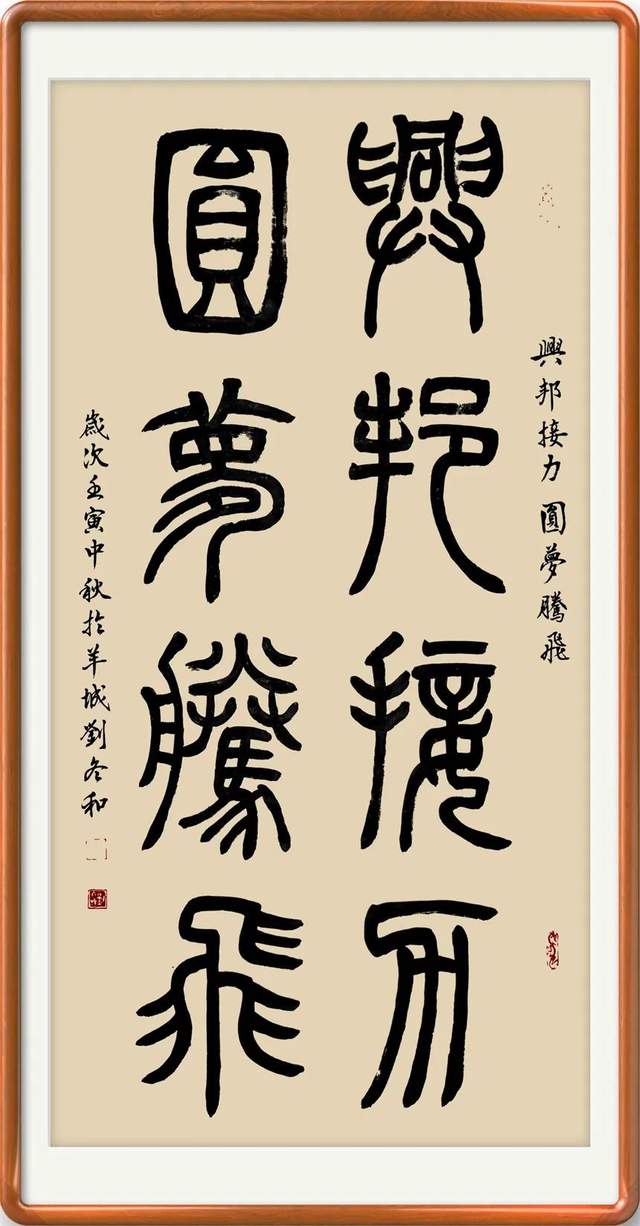 興邦接力圓夢騰飛
興邦接力
圓夢騰飛
歲次壬寅中秋於羊城劉冬和